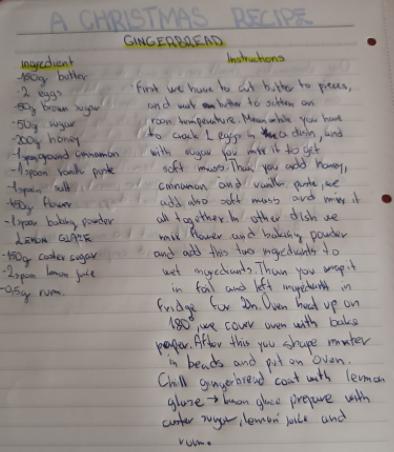 A CHRISTMAS RECIPE
GINGERBREAD
Ingredient
-150g butter
-2 eggs
-50g brown sugar
-50g sugar
-200g honey
-1 spoon ground cinnamon
-1 spoon vanilla paste
-1 spoon salt
-450g flower
-1 spoon baking powder
LEMON GLAZE
-150g caster sugar
-2 spoon lemon juice
-0,5g rum.
Instructions
First we have to cut butter to pieces,
and wait butter to soften on
room temperature. Meanwhile you have
to crack 2 eggs in a dish, and
with sugar you mix it to get
soft mass. Than you add honey,
cinnamon and vanilla paste, we
add also soft mass and mix it
all together. In other dish we
mix flower and baking powder
and add this two ingredients to
wet ingredients. Than you wrap it
in foil and left ingredients in
fridge for 2h. Oven heat up on
180°, we cover oven with bake
paper. After this you shape
in beads and put on oven.
Chill gingerbread coat with lemon
glaze → lemon glaze prepare with
caster sugar, lemon juice and
rum.